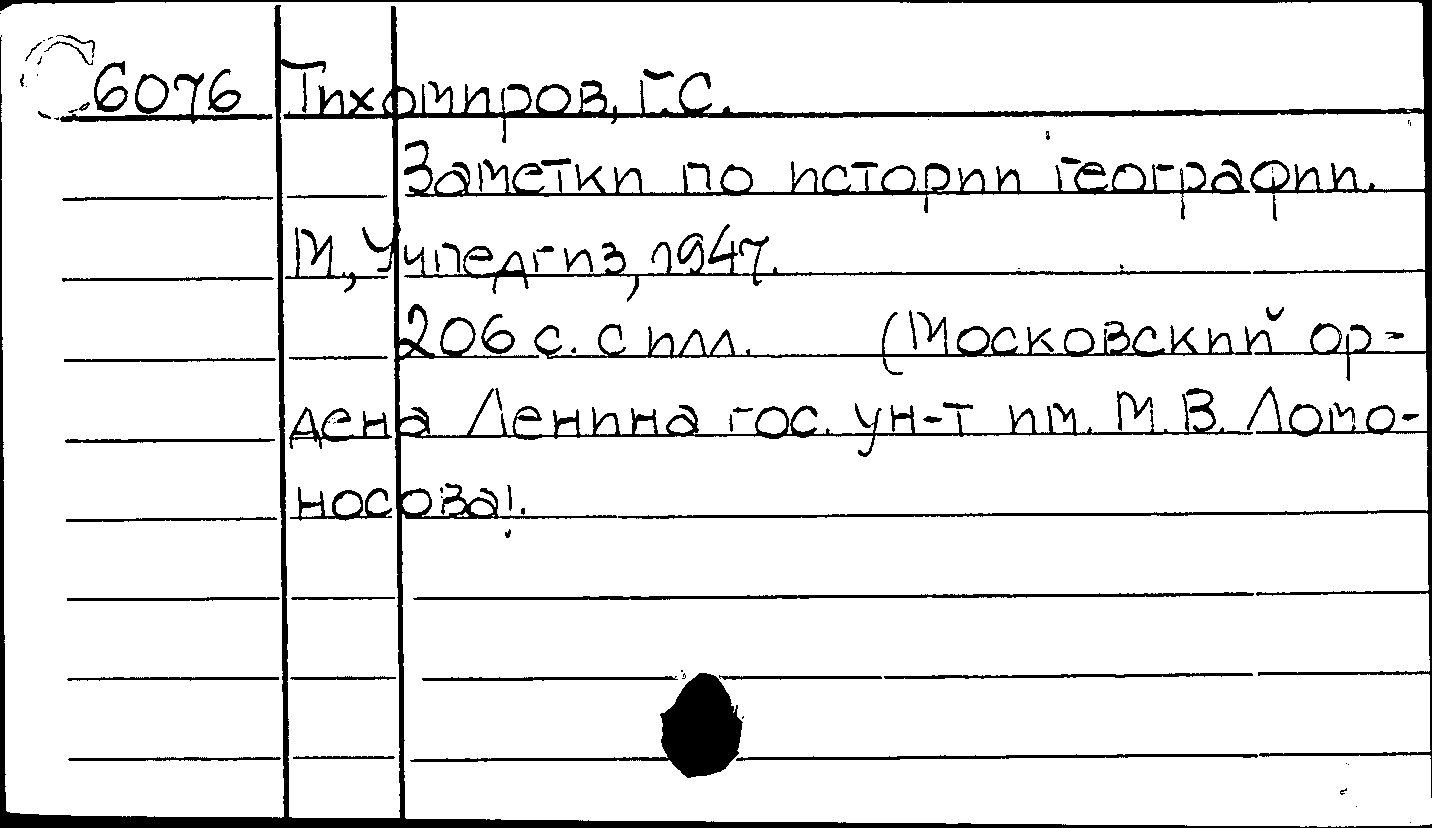 С6076 Тихомиров, Г.С.
Заметки по истории географии.
М., Учпедгиз, 1947.
206 с. с илл. (Московский ор-
дена Ленина гос. ун-т им. М.В. Ломо-
носова).